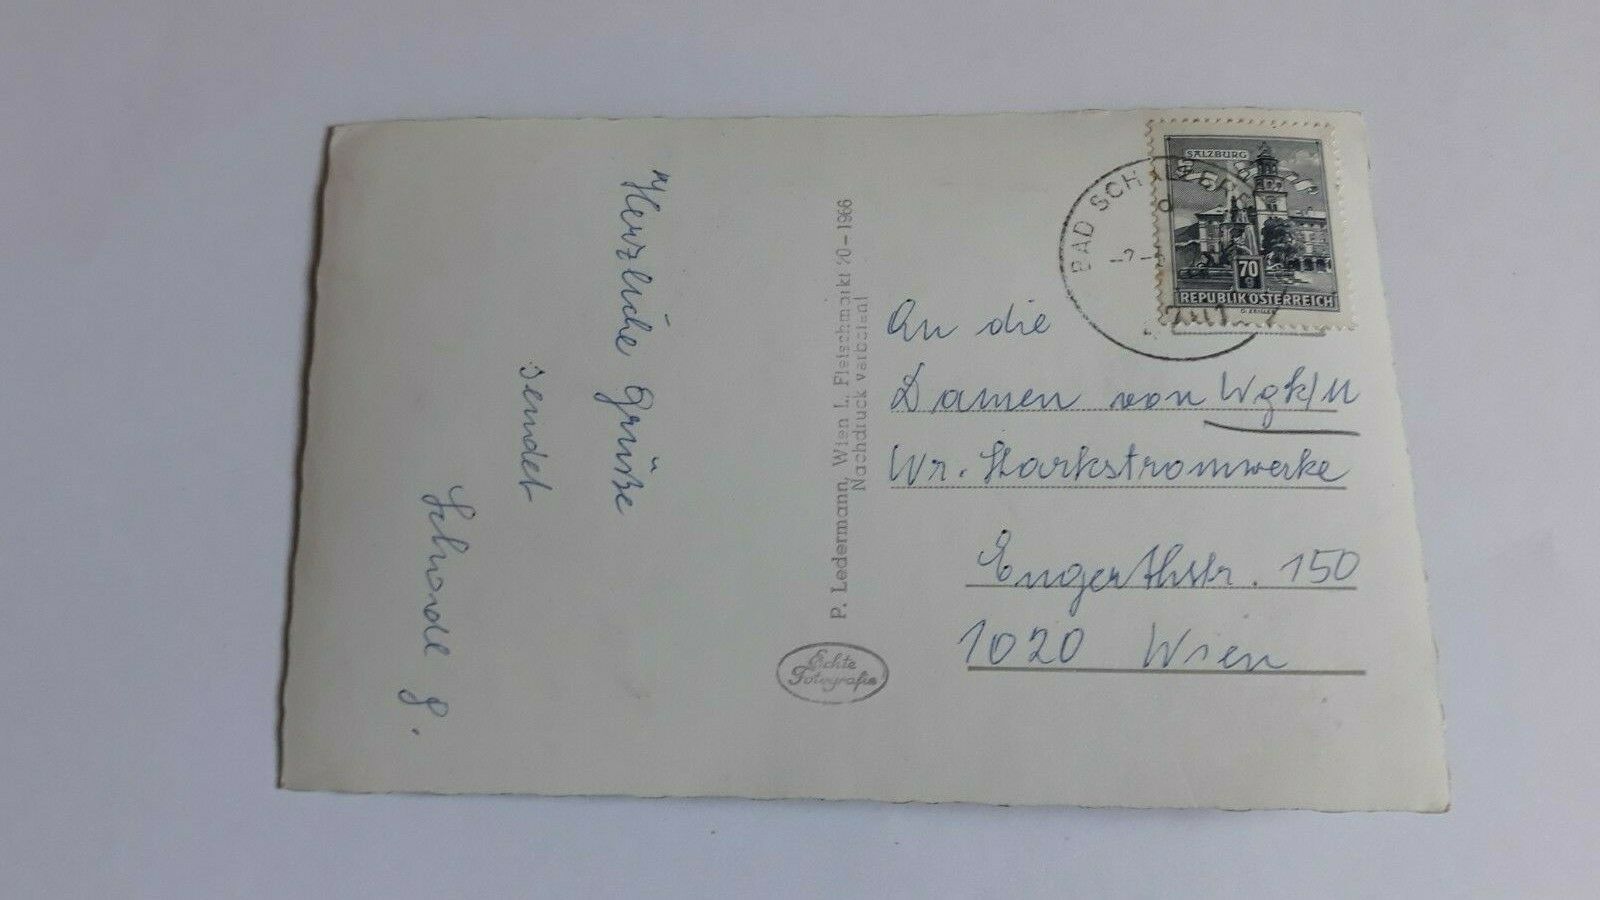 Herzliche Grüße
sendet
P. Ledermann, Wien I., Fleischmarkt 20 - 1966
Nachdruck verboten!
Echte
Fotografie
SALZBURG
70
g
REPUBLIK ÖSTERREICH
G. ZEILLER
BAD SCH
An die
Damen von Wgk/M
Wr. Starkstromwerke
Engerthstr. 150
1020 Wien